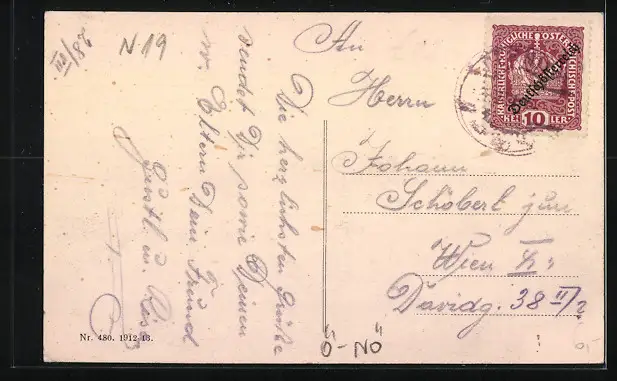 28/III
N19
Die herzlichsten Grüße
sendet Dir sowie Deinen
w. Eltern Dein Freund
Gustl u.
An
Herrn
Johann
Schobert jun
Wien X.
Davidg. 38 II/2
KAISERLICH KÖNIGLICHE ÖSTERREICHISCHE POST
Deutschösterreich
HELLER 10 HELLER
Nr. 480. 1912-13.
Ö-NÖ